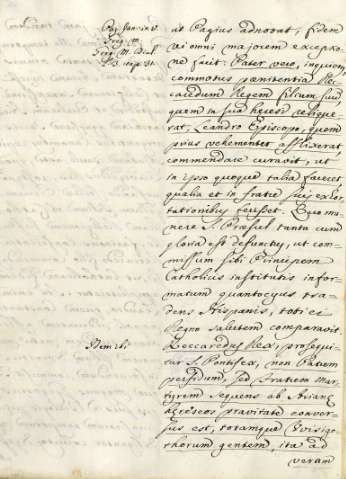 ut Pagius adnotat, fidem
Pag. Jan. in V.
Greg. M.
Greg. M. Dial.
L. 3. cap. 31.
vi omni majorem exceptio
ne facit. Pater vero, inquiens,
commotus pœnitentia Rec
caredum Regem filium suũ,
quem in sua heresi relique
rat, Leandro Episcopo, quem
prius vehementer afflixerat,
commendare curavit, ut
in ipso quoque talia faceret
qualia et in fratre suis exhor
tationibus fecisset. Quo mu
nere S. Præsul tanta cum
gloria est defunctus, ut com
missum sibi Principem
Catholicis institutis infor
matum quantocyus tra
dens Hispanis, toti ei
Regno salutem comparavit.
Idem ibi.
Reccaredus Rex, prosequi
tur S. Pontifex, non Patrem
perfidum, sed fratrem Mar
tyrem sequens ab Arianę
hęreseos pravitate conver
sus est, totamque Wisigo
thorum gentem, ita ad
veram